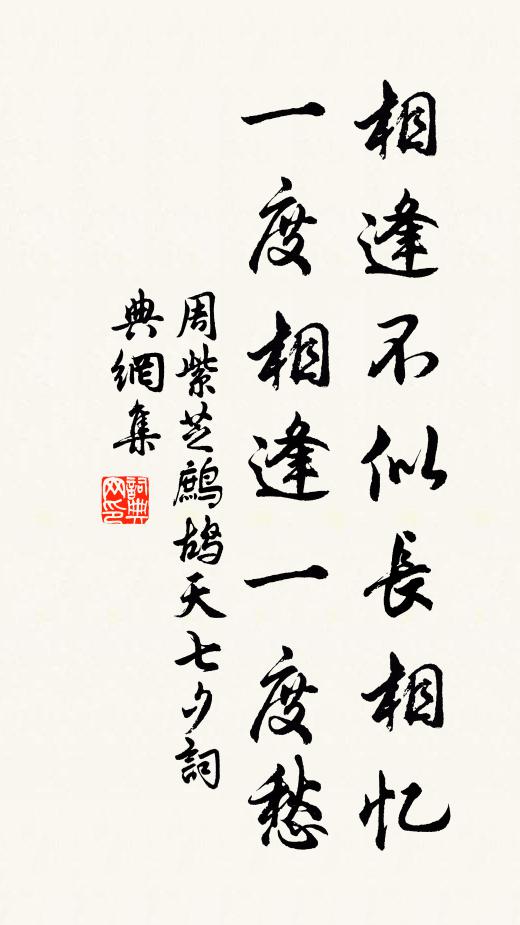 相逢不似長相忆
一度相逢一度愁
周紫芝鷓鴣天七夕詞
典網集
詞典
网印